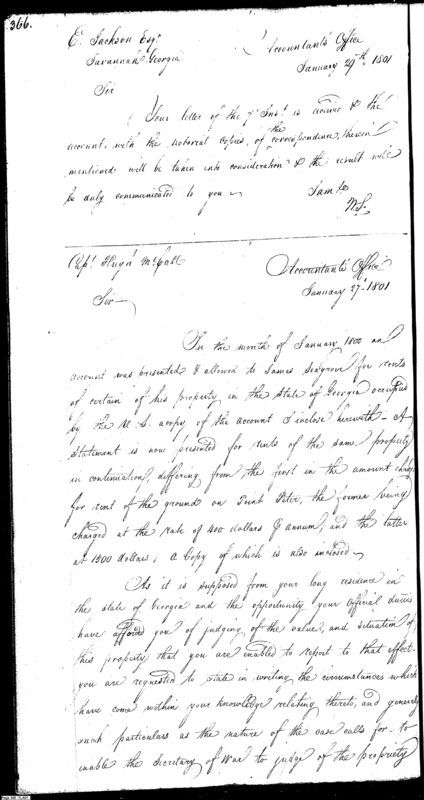 366.
E. Jackson Esqr.
Savannah Georgia
Accountants Office
January 29th 1801
Sir
Your letter of the 7th Inst. is received & the
account, with the notarial copies, of the correspondence, therein
mentioned will be taken into consideration & the result will
be duly communicated to you
I am &c
W.S.
Capt. Hugh McCall
Accountants Office
January 27th 1801
Sir
In the month of January 1800 an
account was presented & allowed to James Seagrove for rents
of certain of his property in the State of Georgia occupied
by the U.S. a copy of the account I inclose herewith - A
Statement is now presented for rents of the same property
in continuation, differing from the first in the amount charged
for rent of the ground on Point Peter, the former being
charged at the rate of 400 dollars P annum, and the latter
at 1500 dollars; a Copy of which is also inclosed
As it is supposed from your long residence in
the state of Georgia and the opportunity your Official duties
have afforded you of judging of the value, and situation of
this property that you are enabled to report to that effect.
you are requested to state in writing the circumstances which
have come within your knowledge relating thereto, and generally
such particulars as the nature of the case calls for to
enable the Secretary of War to judge of the propriety